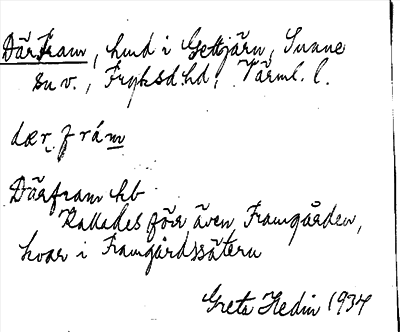 Därfram, hmd i Gettjärn, Sunne
sn v., Fryksd. hd, Värml. l.
dær fram
Därfram hb
Kallades förr även Framgården,
kvar i Framgårdssätern
Greta Hedin 1934